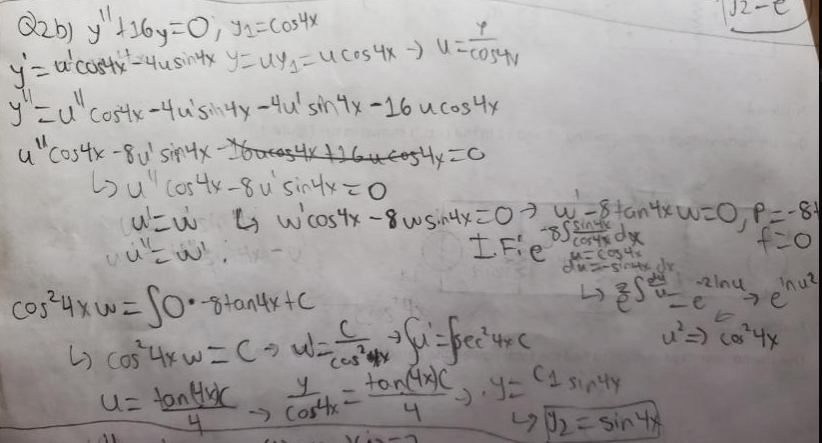 Q2b) y''+16y=0, y1=cos4x
y'=u'cos4x-4usin4x y=uy1=ucos4x → u=y/cos4x
y''=u''cos4x-4u'sin4x-4u'sin4x-16ucos4x
u''cos4x-8u'sin4x-16ucos4x+16ucos4x=0
↳ u''cos4x-8u'sin4x=0
u'=w ↳ w'cos4x-8wsin4x=0 → w'-8tan4xw=0, P=-8t
u''=w' I.F: e^-8∫sin4x/cos4x dx f=0
u=cos4x
du=-sin4x dx
↳ e^2∫du/u = e^-2lnu → e^lnu²
cos²4xw=∫0·-8tan4x+C u² ⇒ cos²4x
↳ cos²4xw=C → w=C/cos²4x → ∫u'=∫sec²4xC
u=tan(4x)C/4 → y/cos4x=tan(4x)C/4 → y=C1sin4x
↳ y2=sin4x